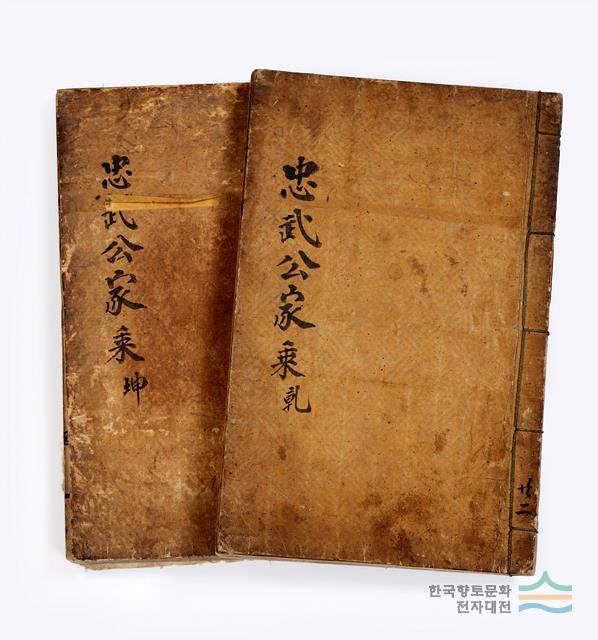 忠武公家乗 乾
共二
忠武公家乗 坤
한국향토문화
전자대전